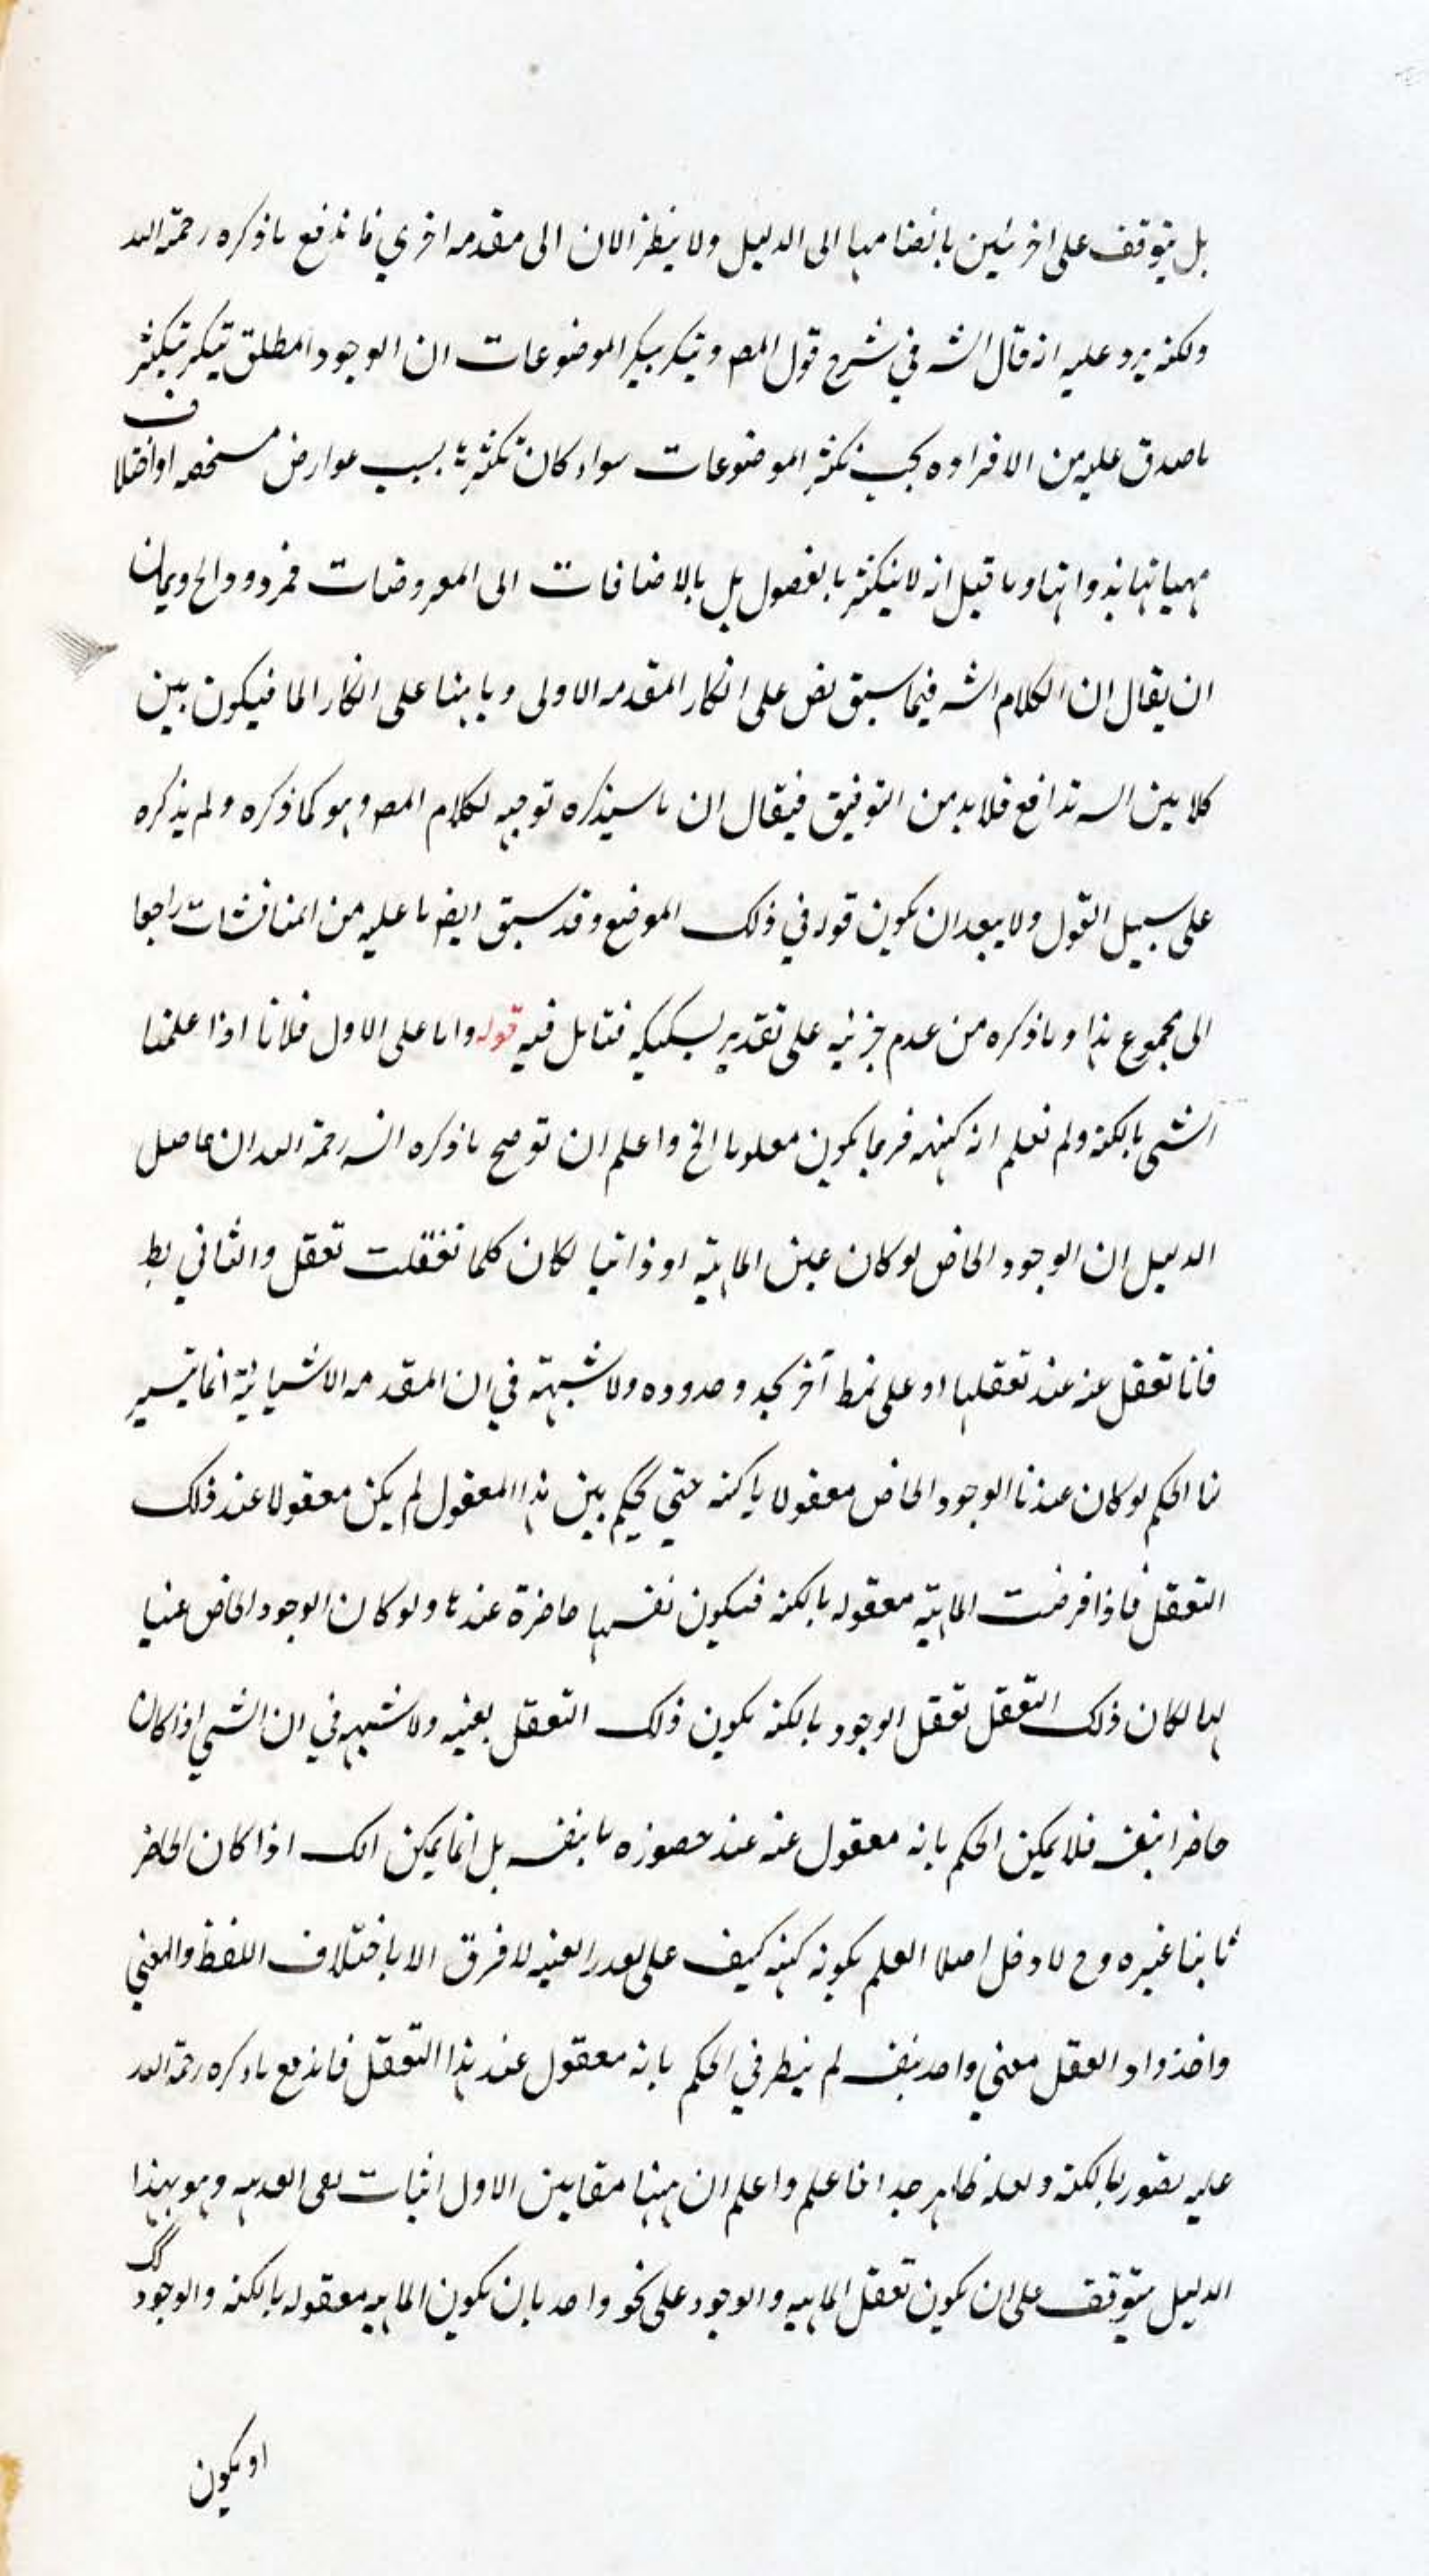 بل يتوقف على اخريين بانضامها الى الدليل ولا ينظر الان الى مقدمه اخري فاندفع ماذكره رحمة الله
ولكنه يرد عليه انه قال الش في شرح قول المص ويتكثر بتكثر الموضوعات ان الوجود المطلق يتكثر بتكثر
ماصدق عليه من الافراده بحسب تكثر الموضوعات سواء كان تكثرها بسبب عوارض مشخصه او اختلاف
مهياتها بذواتها وما قيل انه لا يتكثر بالفصول بل بالاضافات الى المعروضات فمردود الخ ويمكن
ان يقال ان الكلام الش فيما سبق نص على انكار المقدمه الاولى و على انكار فيكون بين
كلا بين الش تدافع فلا بد من التوفيق فيقال ان ماسيذكره توجيه لكلام المص وهو كما ذكره ولم يذكره
على سبيل القول ولا يبعد ان يكون قوله في ذلك الموضع وقد سبق ايض ما عليه من المناقشات راجعا
الى مجموع هذا وماذكره من عدم جزئيه على تقدير تشكيكه فتامل فيه قوله واما على الاول فلانا اذا علمنا
الشي بالكنه ولم نعلم انه كنهه فربما يكون معلوما الخ واعلم ان توضح ماذكره الش رحمة الله ان حاصل
الدليل ان الوجود الخاص لو كان عين الماهيته او ذاتيا لكان كلما تعقلت تعقل والثاني بط
فانا نعقل عنه عند تعقلها او على نمط آخر بحد وحدوده ولا شبهة في ان المقدمه انما تيسير
لنا الحكم لو كان عندنا الوجود الخاص معقولا باكنه حتي يحكم بين هذا المعقول لم يكن معقولا عند ذلك
التعقل فاذا فرضت الماهيته معقوله بالكنه فتكون نفسها حاضرة عندها ولو كان الوجود الخاص عينا
لها لكان ذلك التعقل تعقل الوجود بالكنه يكون ذلك التعقل بعينه ولا شبهه في ان الشي اذا كان
حاضرا بنفسه فلا يمكن الحكم بانه معقول عنه عند حضوره بنفسه بل انما يمكن الك اذا كان الحاضر
ثابتا غيره وح لا دخل اصلا العلم بكونه كنهه كيف على العينيه لا فرق الا باختلاف اللفظ والمعني
واحد واذا العقل معني واحد بنفسه لم ينظر في الحكم بانه معقول عند هذا التعقل فاندفع ماذكره رحمة الله
عليه بصور بالكنه ولعله ظاهر جدا فاعلم واعلم ان ههنا مقامين الاول اثبات وهو بهذا
الدليل يتوقف على ان يكون تعقل الماهيه والوجود على نحو واحد بان يكون الماهيه معقوله بالكنه والوجود ك
او يكون